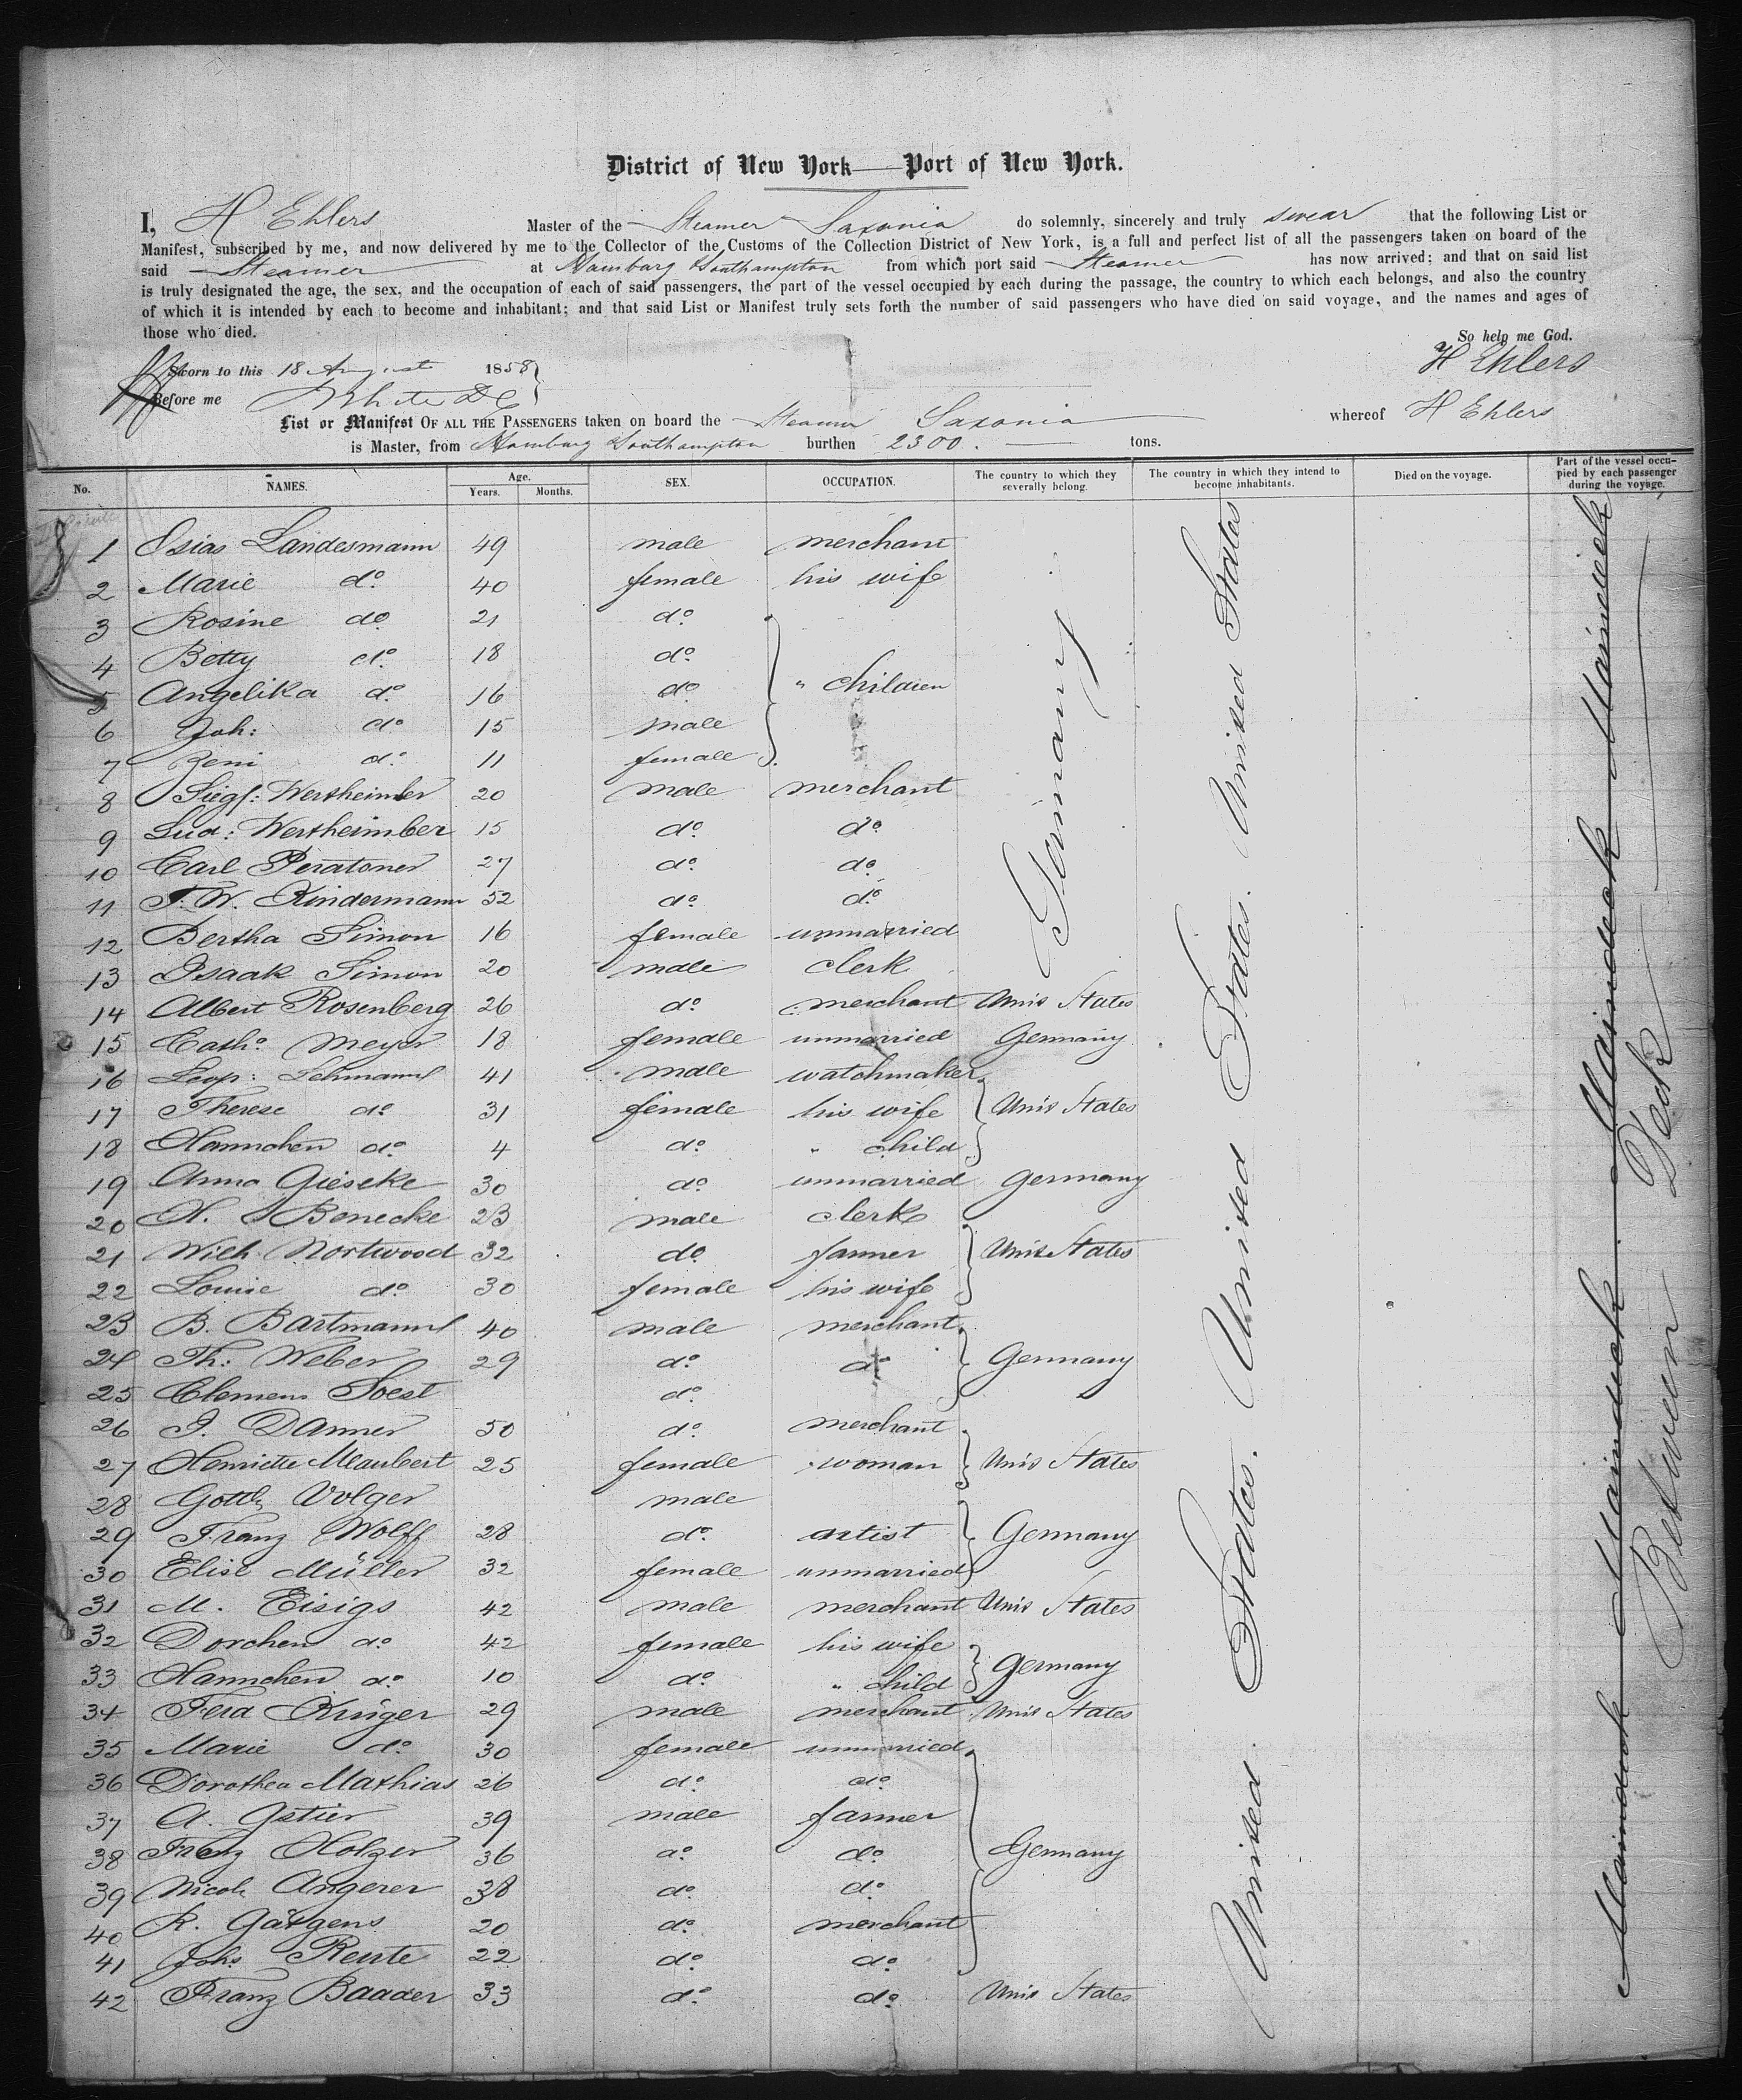 District of New York — Port of New York.
I, H Ehlers Master of the Steamer Saxonia do solemnly, sincerely and truly swear that the following List or
Manifest, subscribed by me, and now delivered by me to the Collector of the Customs of the Collection District of New York, is a full and perfect list of all the passengers taken on board of the
said Steamer at Hamburg Southampton from which port said Steamer has now arrived; and that on said list
is truly designated the age, the sex, and the occupation of each of said passengers, the part of the vessel occupied by each during the passage, the country to which each belongs, and also the country
of which it is intended by each to become and inhabitant; and that said List or Manifest truly sets forth the number of said passengers who have died on said voyage, and the names and ages of
those who died. So help me God.
Sworn to this 18 August 1858 H Ehlers
Before me White
List or Manifest OF ALL THE PASSENGERS taken on board the Steamer Saxonia whereof H Ehlers
is Master, from Hamburg Southampton burthen 2300. tons.
No. NAMES. Age. Years. Months. SEX. OCCUPATION. The country to which they severally belong. The country in which they intend to become inhabitants. Died on the voyage. Part of the vessel occupied by each passenger during the voyage.
1 Osias Landesmann 49 male merchant
2 Marie do 40 female his wife
3 Rosine do 21 do
4 Betty do 18 do
5 Angelika do 16 do " children
6 Joh: do 15 male
7 Reni do 11 female
Germany
8 Siegf: Wertheimber 20 male merchant
9 Lud: Wertheimber 15 do do
10 Carl Peratoner 27 do do
11 F. W. Kindermann 52 do do
12 Bertha Simon 16 female unmarried
13 Isaak Simon 20 male clerk
14 Albert Rosenberg 26 do merchant Unit States
15 Cath: Meyer 18 female unmarried Germany
16 Leop: Lehmann 41 male watchmaker
17 Therese do 31 female his wife Unit States
18 Hannchen do 4 do " child
19 Anna Gieseke 30 do unmarried Germany
20 H. S Benecke 23 male clerk
21 Wilh. Nortwood 32 do farmer Unit States
22 Louise do 30 female his wife
23 B. Bartmann 40 male merchant
24 Th: Weber 29 do do Germany
25 Clemens Soest do
26 J. Danner 50 do merchant
27 Henriette Maubert 25 female woman Unit States
28 Gottl. Volger male
29 Franz Wolff 28 do artist Germany
30 Elise Müller 32 female unmarried
31 M. Eisigs 42 male merchant Unit States
32 Dorchen do 42 female his wife
33 Hannchen do 10 do " child Germany
34 Ferd Krüger 29 male merchant Unit States
35 Marie do 30 female unmarried
36 Dorothea Mathias 26 do do
37 A. Istier 39 male farmer
38 Franz Holzer 36 do do Germany
39 Nicol. Angerer 38 do do
40 R. Gätgens 20 do merchant
41 Johs Rente 22 do do
42 Franz Baader 33 do do Unit States
United States. United States. United States
Maindeck Maindeck Maindeck Maindeck
Between Deck